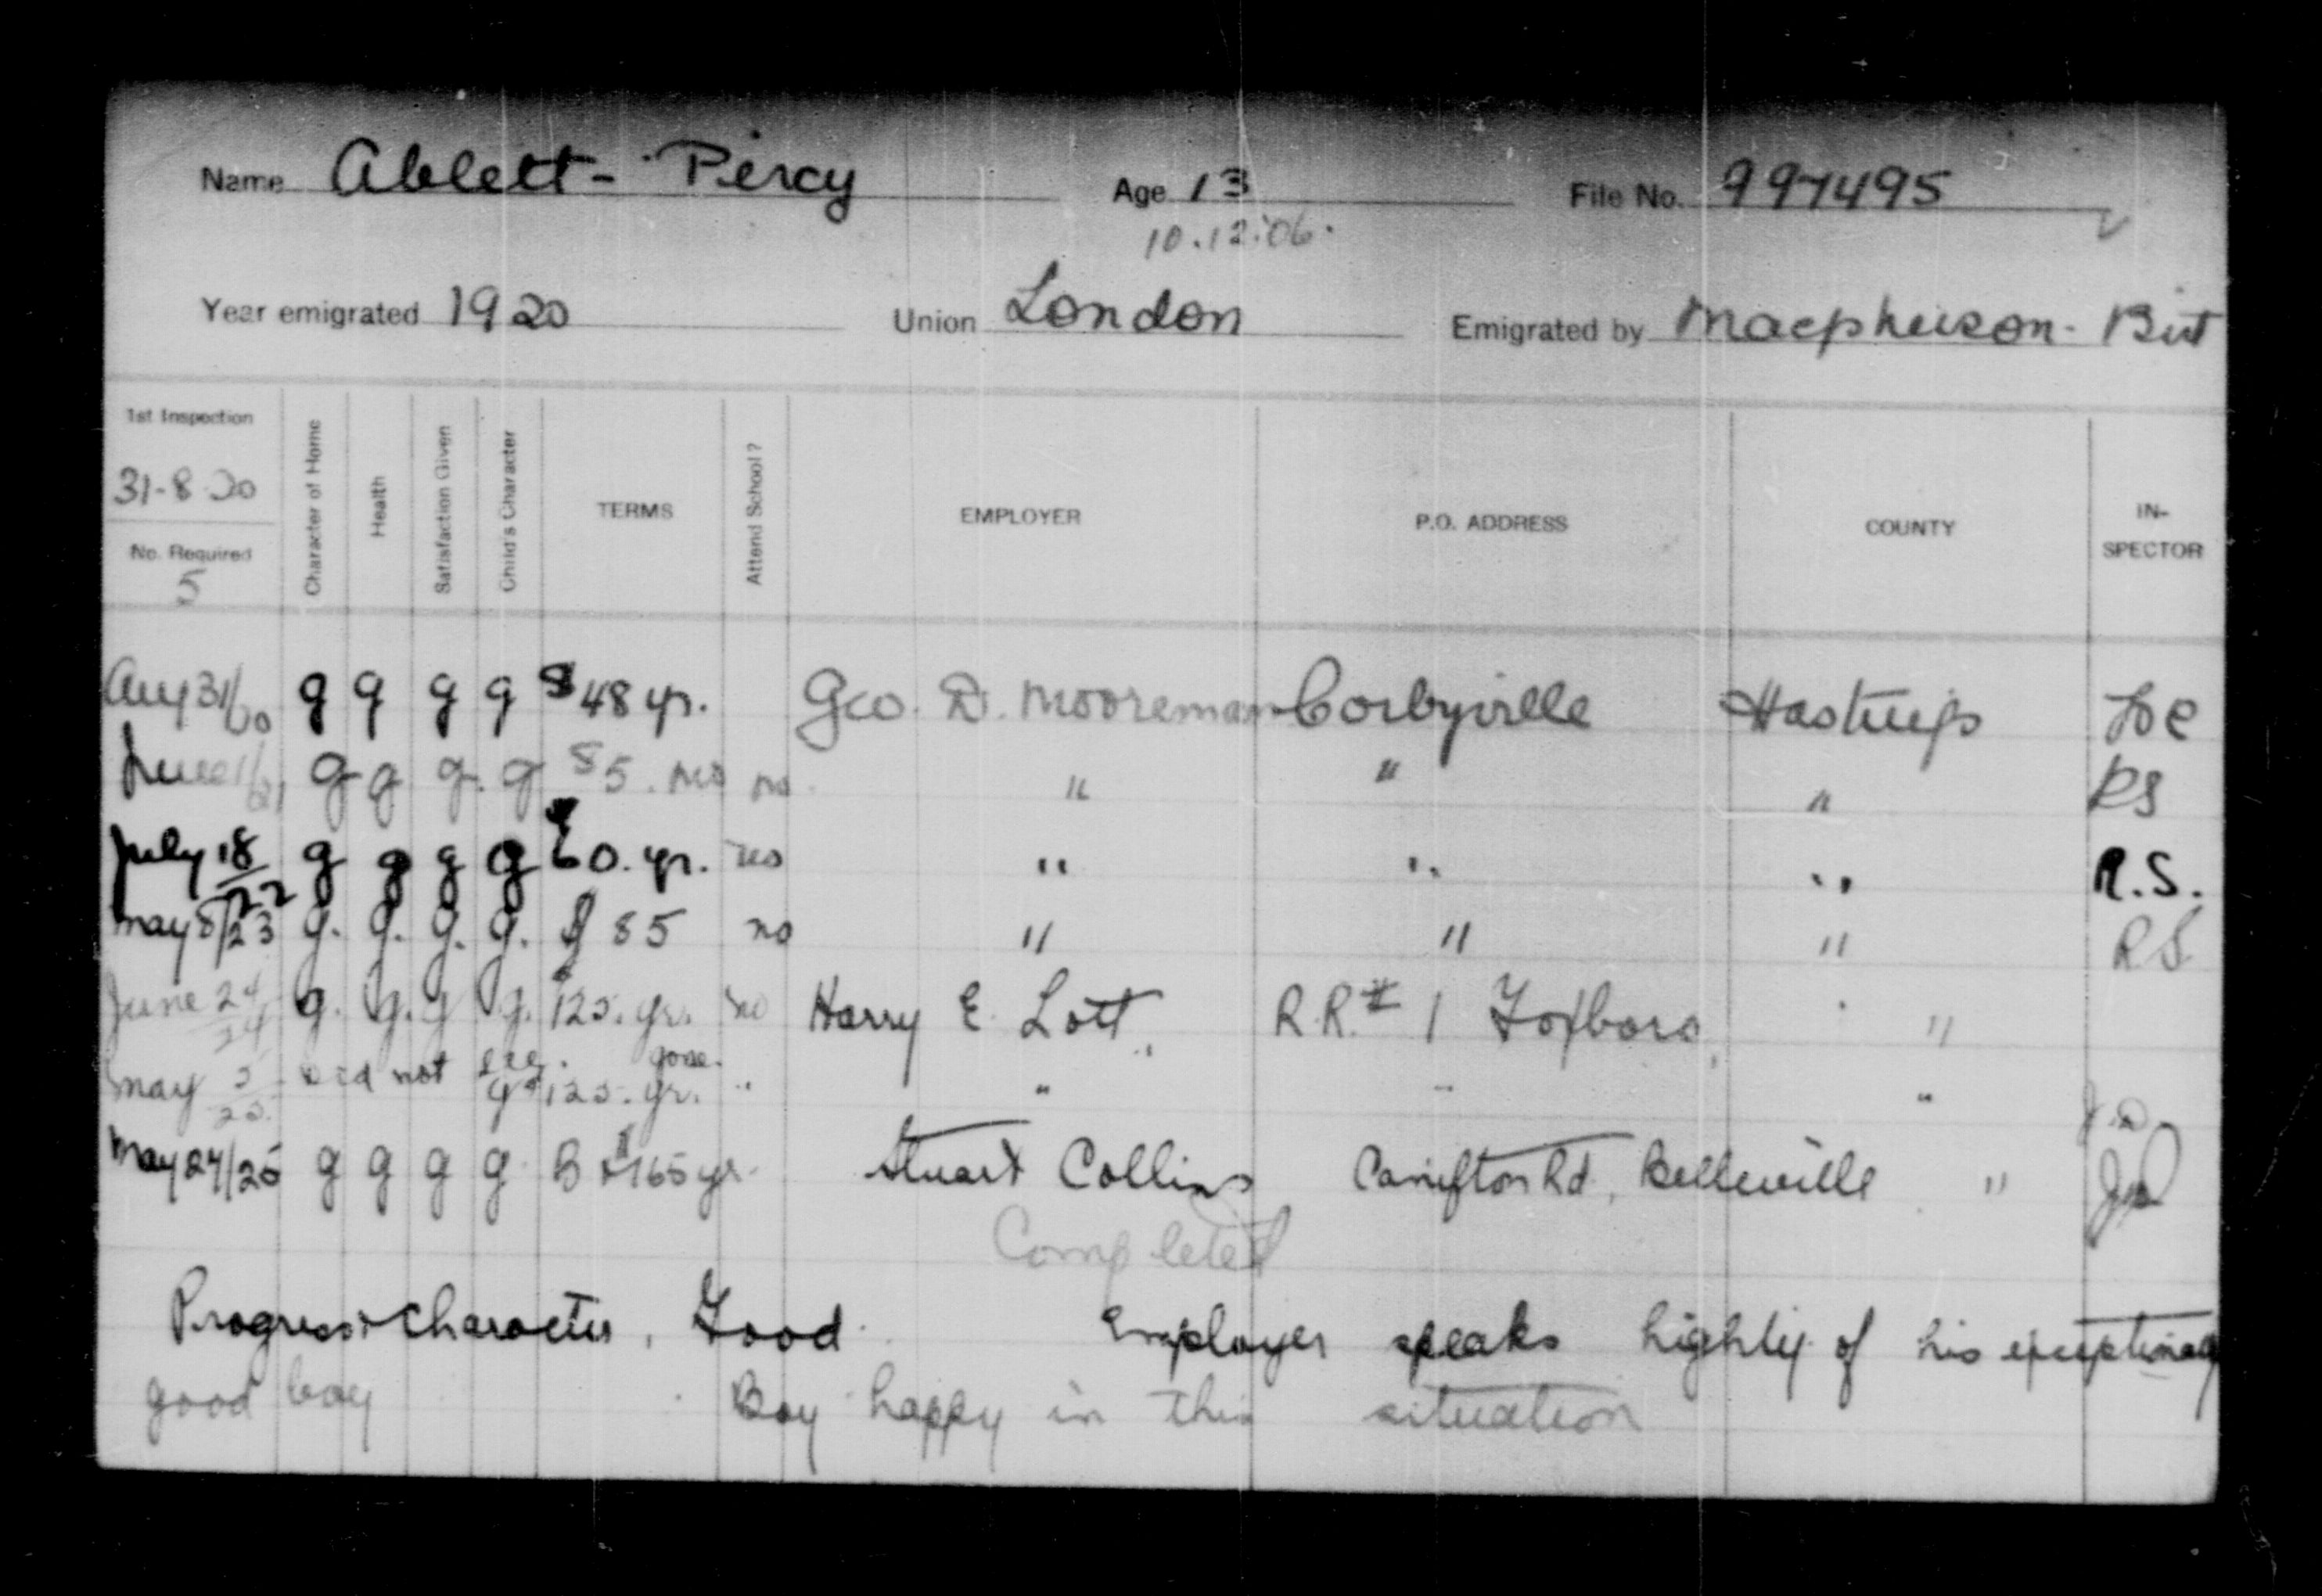 Name Ablett - Percy Age 13 File No. 997495
10.12.06.
Year emigrated 1920 Union London Emigrated by Macpherson - Birt
1st Inspection
31-8-20
No. Required
5
Character of Home Health Satisfaction Given Child's Character TERMS Attend School? EMPLOYER P.O. ADDRESS COUNTY IN-SPECTOR
Aug 31/20 g g g g $48 yr. Geo. D. Mooreman Corbyville Hastings
June 1/21 g g g. g $5. mo no " " " RS
July 18/22 g g g g $60. yr. no " " " R.S.
May 8/23 g. g. g. g. $85 no " " " RS
June 24/24 g. g. g g. $125. yr. no Harry E. Lott R.R. # 1 Foxboro "
did not see. gone.
May 5/25 g $125. yr. " " " "
May 24/25 g g g g B + $165 yr. Stuart Collins Canifton Rd, Belleville "
Completed
Progress & Character, Good. Employer speaks highly of his exceptionally
good boy Boy happy in this situation